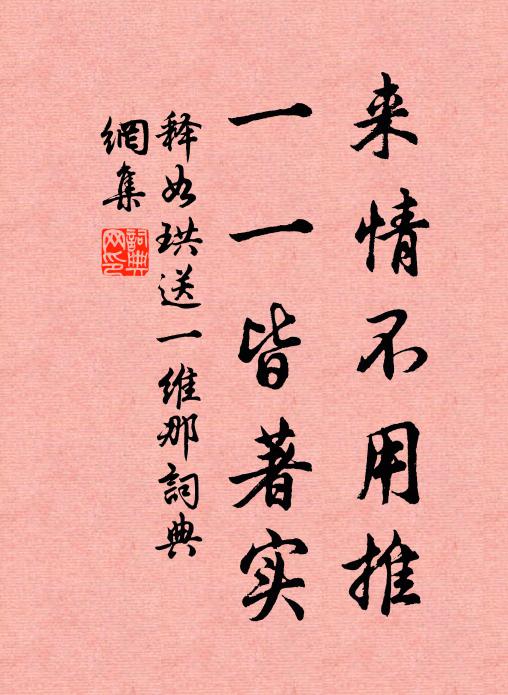 来情不用推
一一皆著实
释如珙送一维那詞典
網集
詞典网印